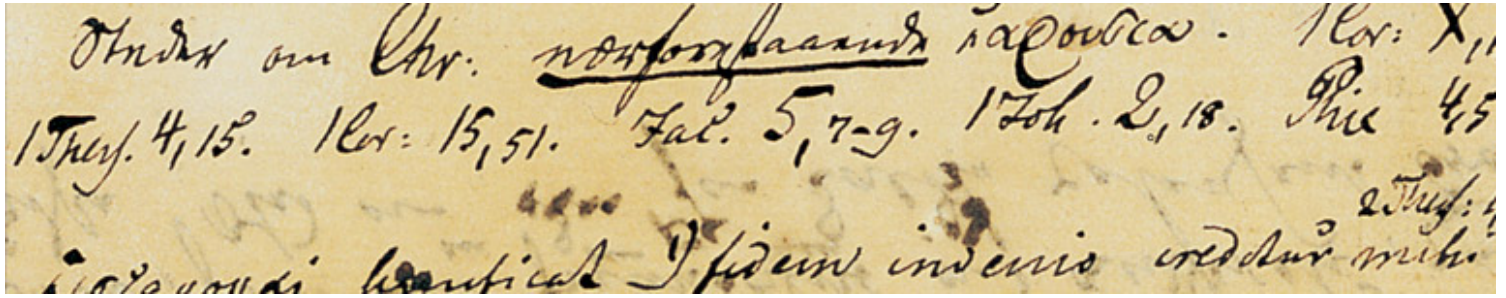 Steder om Chr: nærforestaaende παρουσια. 1 Cor: X, 1
1 Thess. 4, 15. 1 Cor: 15, 51. Jac. 5, 7-9. 1 Joh. 2, 18. Phil 4, 5
2 Thess: 1,
significat 1) fidem invenio creditur mihi